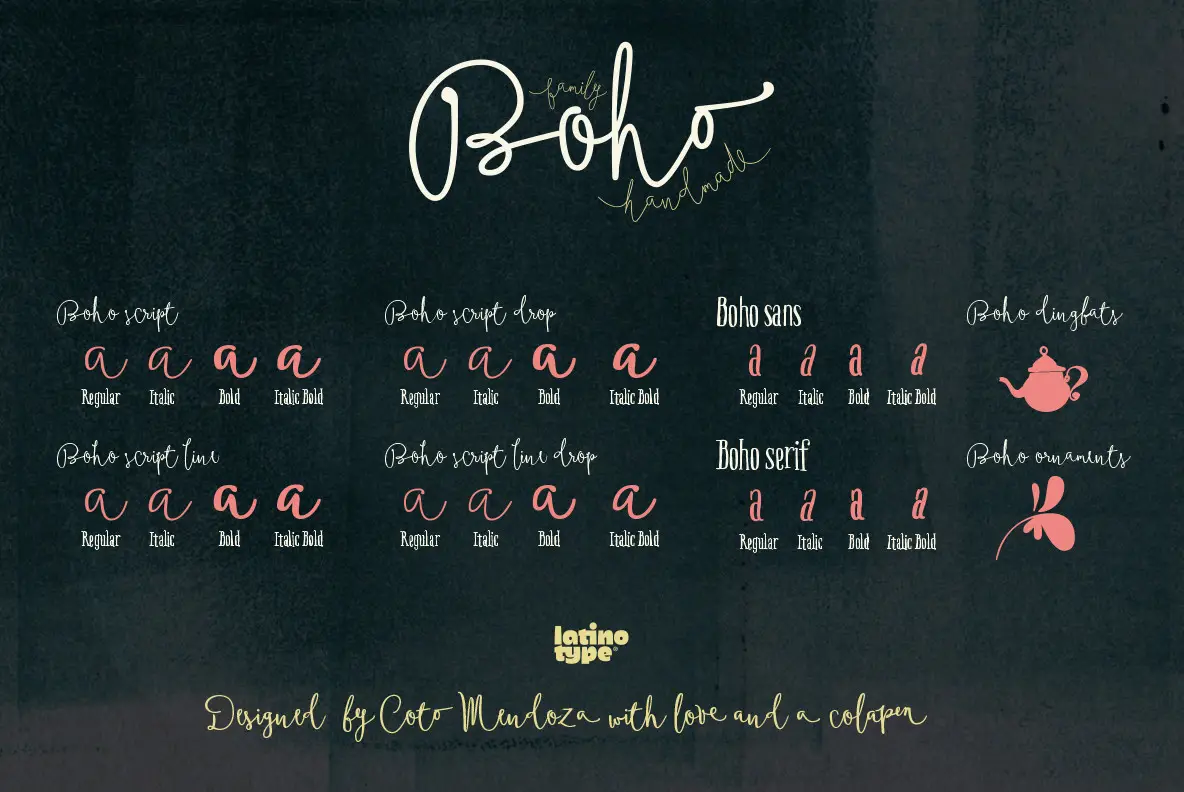 family
Boho
handmade
Boho script
a a a a
Regular Italic Bold Italic Bold
Boho script drop
a a a a
Regular Italic Bold Italic Bold
Boho sans
a a a a
Regular Italic Bold Italic Bold
Boho dingbats
Boho script line
a a a a
Regular Italic Bold Italic Bold
Boho script line drop
a a a a
Regular Italic Bold Italic Bold
Boho serif
a a a a
Regular Italic Bold Italic Bold
Boho ornaments
latino
type®
Designed by Coto Mendoza with love and a colapen